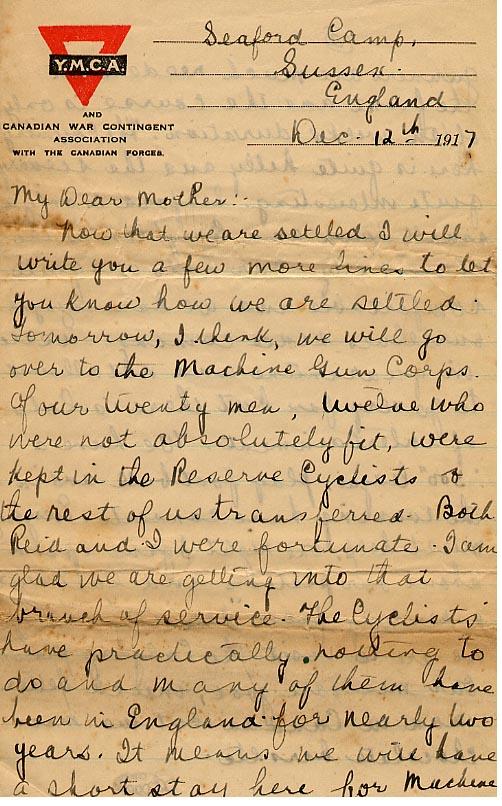 Y.M.C.A.
AND
CANADIAN WAR CONTINGENT
ASSOCIATION
WITH THE CANADIAN FORCES.
Seaford Camp,
Sussex.
England
Dec. 12th 1917
My Dear Mother:-
Now that we are settled I will
write you a few more lines to let
you know how we are settled.
Tomorrow, I think, we will go
over to the Machine Gun Corps.
Of our twenty men, twelve who
were not absolutely fit, were
kept in the Reserve Cyclists &
the rest of us transferred. Both
Reid and I were fortunate. I am
glad we are getting into that
branch of service. The Cyclists
have practically nothing to
do and many of them have
been in England for nearly two
years. It means we will have
a short stay here for Machine